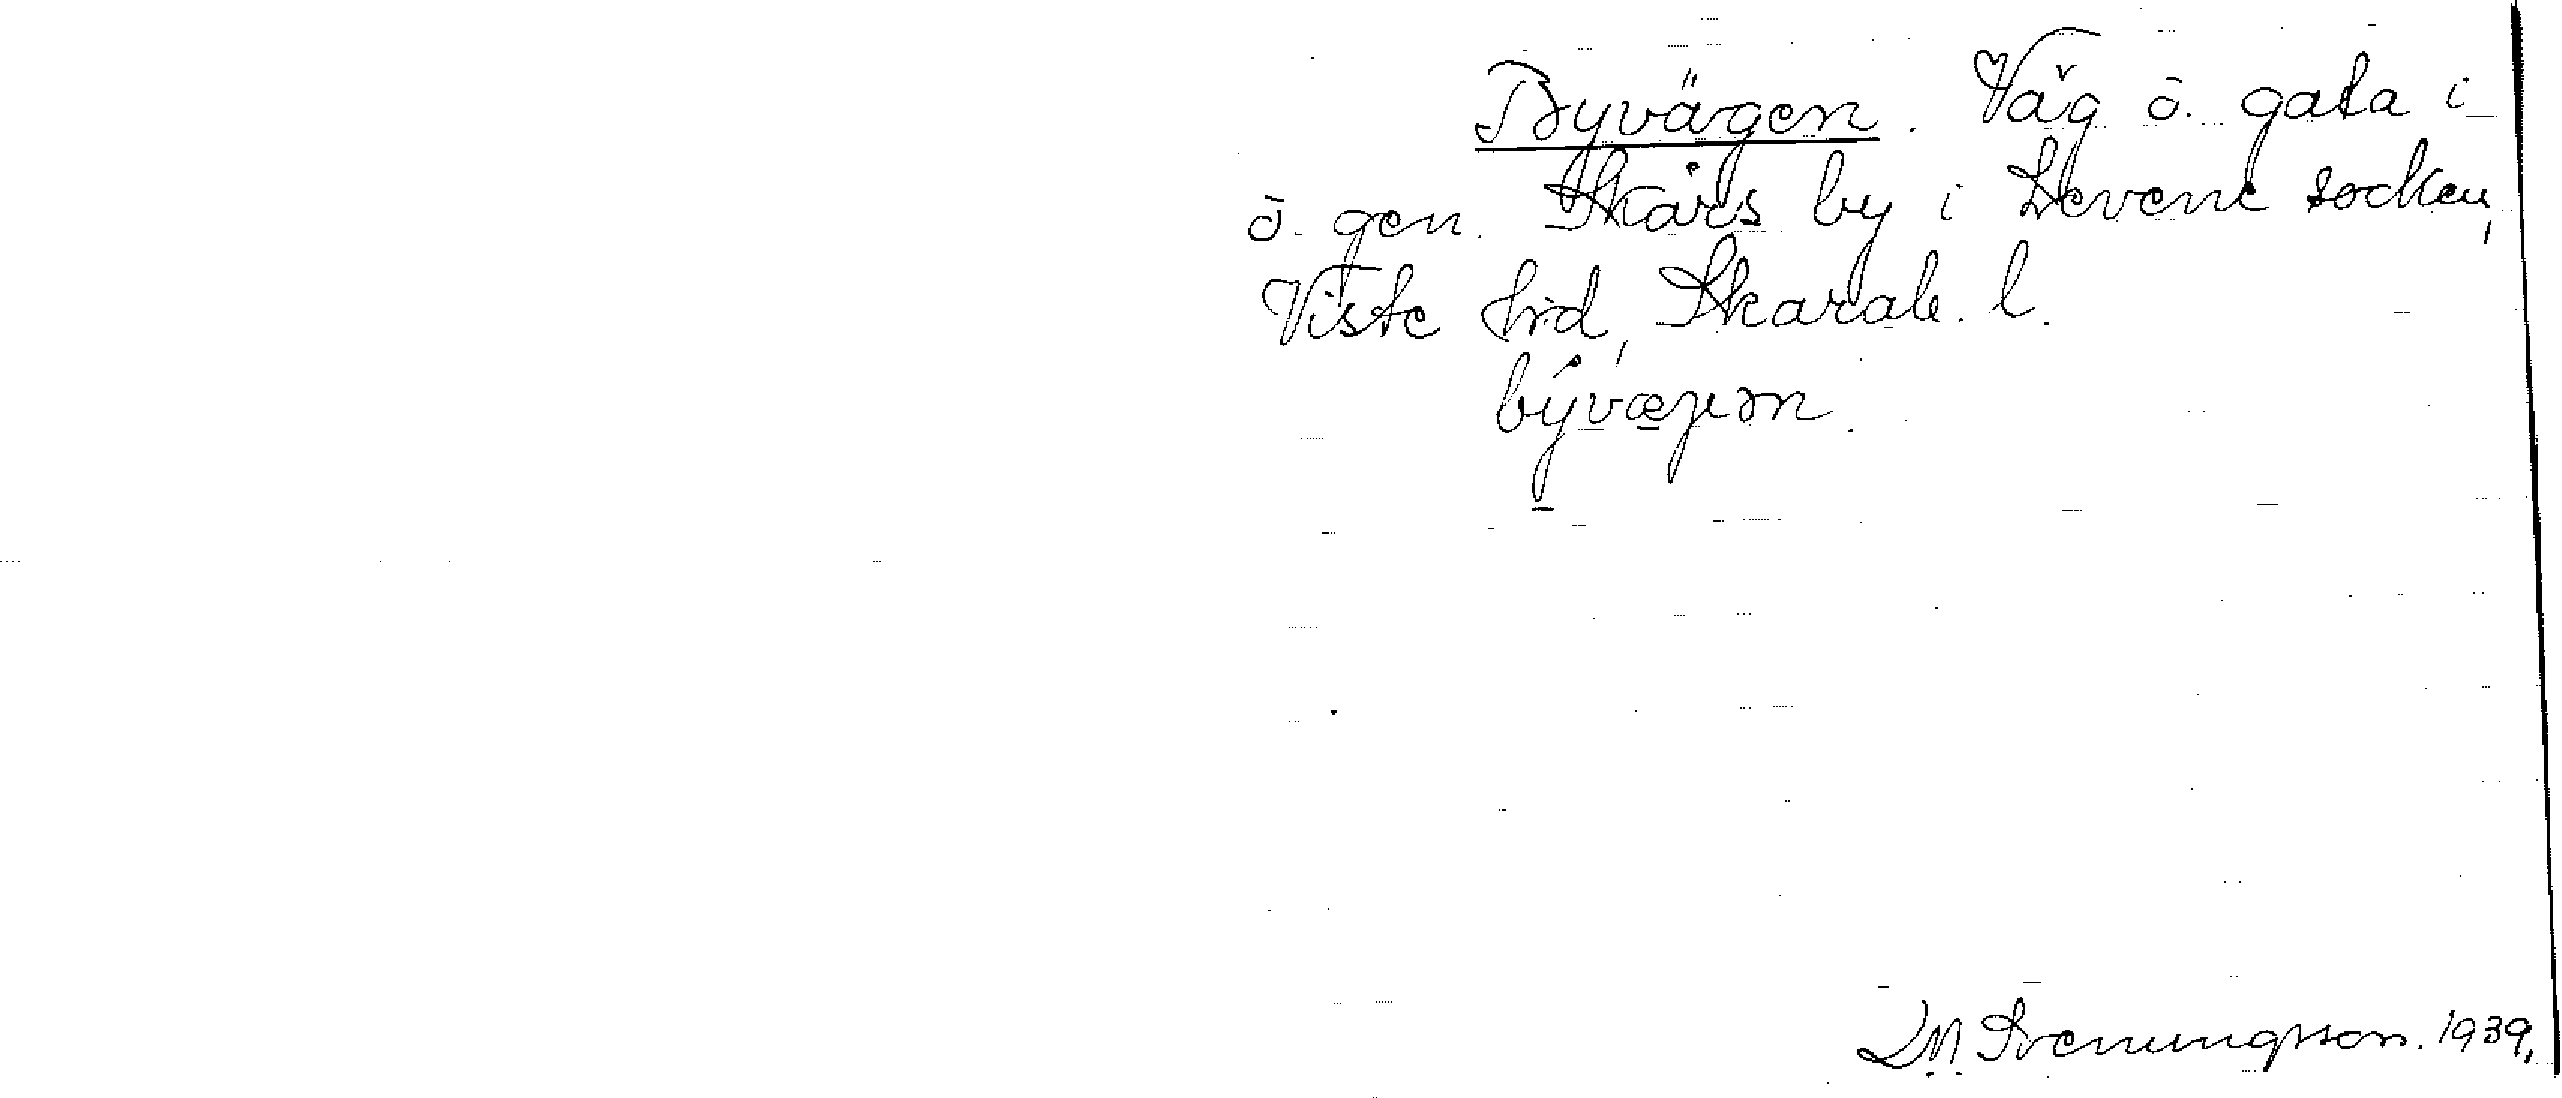 Byvägen. Väg o. gata i
o. gen. Skårs by i Levene socken,
Viste hrd, Skarab. l.
bý̠væ̠gən.
LM Svenungsson. 1939.